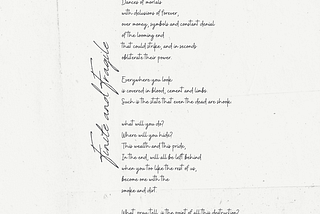 Finite and Fragile
Dances of mortals
with delusions of forever,
over money, symbols and constant denial
of the looming end
that could strike, and in seconds
obliterate their power.
Everywhere you look
is covered in blood, cement and limbs
Such is the state that even the dead are shook
what will you do?
Where will you hide?
This wealth and this pride,
In the end, will all be left behind
when you too like the rest of us,
become one with the
smoke and dust.
What, pray tell, is the point of all this destruction?